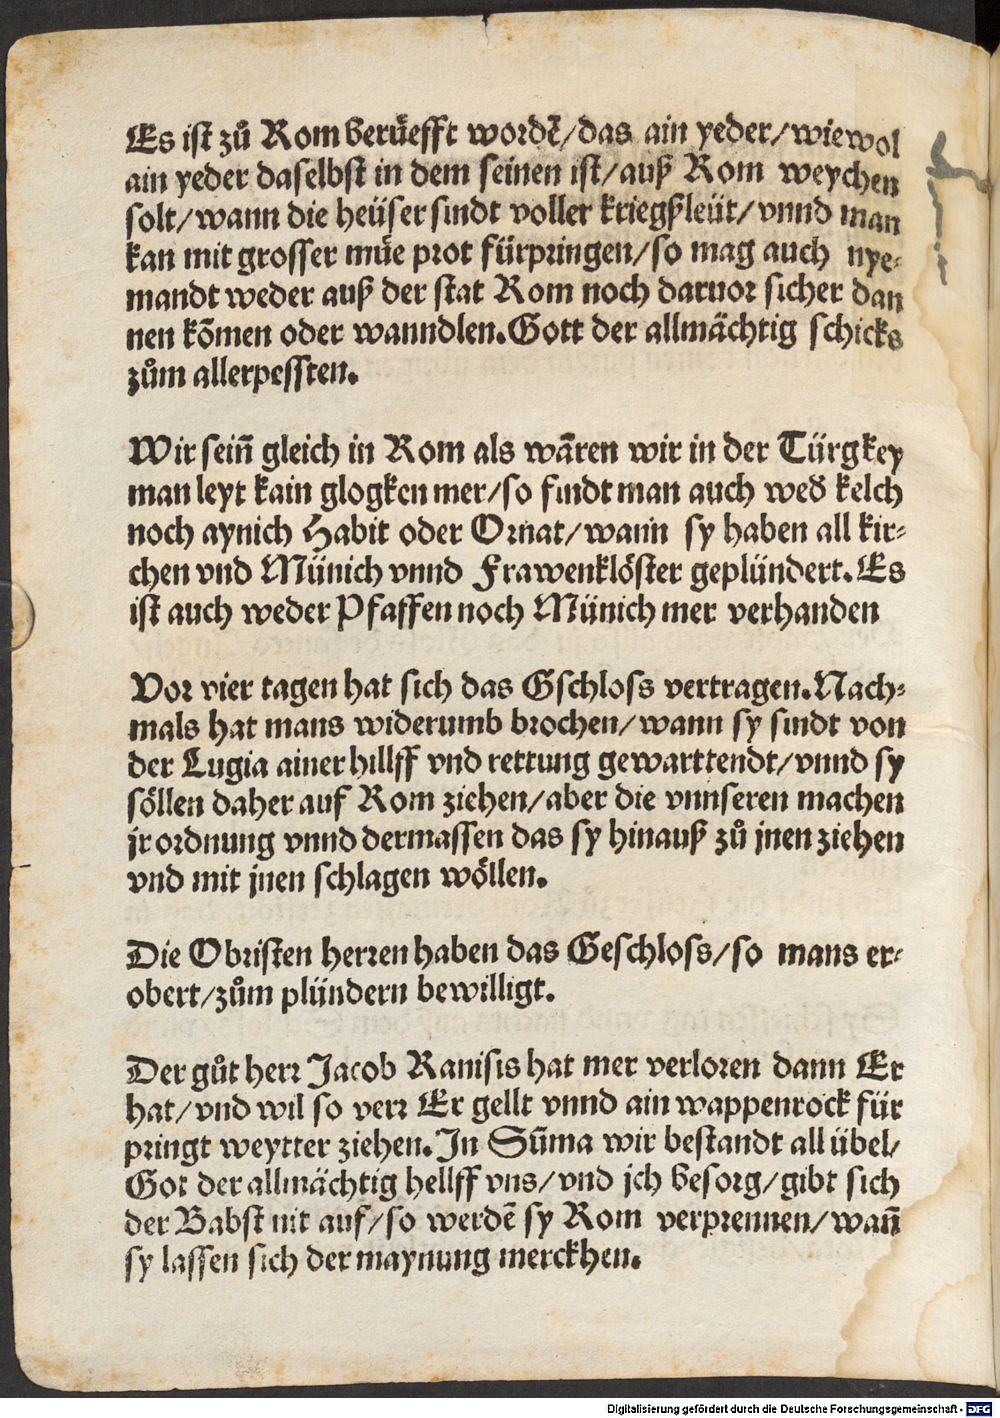 Es ist zů Rom berüefft wordẽ/das ain yeder/wiewol
ain yeder daselbst in dem seinen ist/auß Rom weychen
solt/wann die heüser sindt voller kriegßleüt/vnnd man
kan mit grosser müe prot fürpringen/so mag auch nye-
mandt weder auß der stat Rom noch daruor sicher dan
nen kõmen oder wanndlen. Gott der allmächtig schicks
zům allerpessten.
Wir seiñ gleich in Rom als wären wir in der Türgkey
man leyt kain glogken mer/so findt man auch wed̕ kelch
noch aynich Habit oder Ornat/wann sy haben all kir-
chen vnd Münich vnnd Frawenklöster geplündert. Es
ist auch weder Pfaffen noch Münich mer verhanden
Vor vier tagen hat sich das Gschloss vertragen. Nach-
mals hat mans widerumb brochen/wann sy sindt von
der Lugia ainer hillff vnd rettung gewarttendt/vnnd sy
söllen daher auf Rom ziehen/aber die vnnseren machen
jr ordnung vnnd dermassen das sy hinauß zů jnen ziehen
vnd mit jnen schlagen wöllen.
Die Obristen herren haben das Geschloss/so mans er-
obert/zům plündern bewilligt.
Der gůt herr Jacob Ranisis hat mer verloren dann Er
hat/vnd wil so verr Er gellt vnnd ain wappenrock für
pringt weytter ziehen. In Sũma wir bestandt all übel/
Got der allmächtig hellff vns/vnd jch besorg/gibt sich
der Babst nit auf/so werdẽ sy Rom verprennen/wañ
sy lassen sich der maynung merckhen.
Digitalisierung gefördert durch die Deutsche Forschungsgemeinschaft - DFG